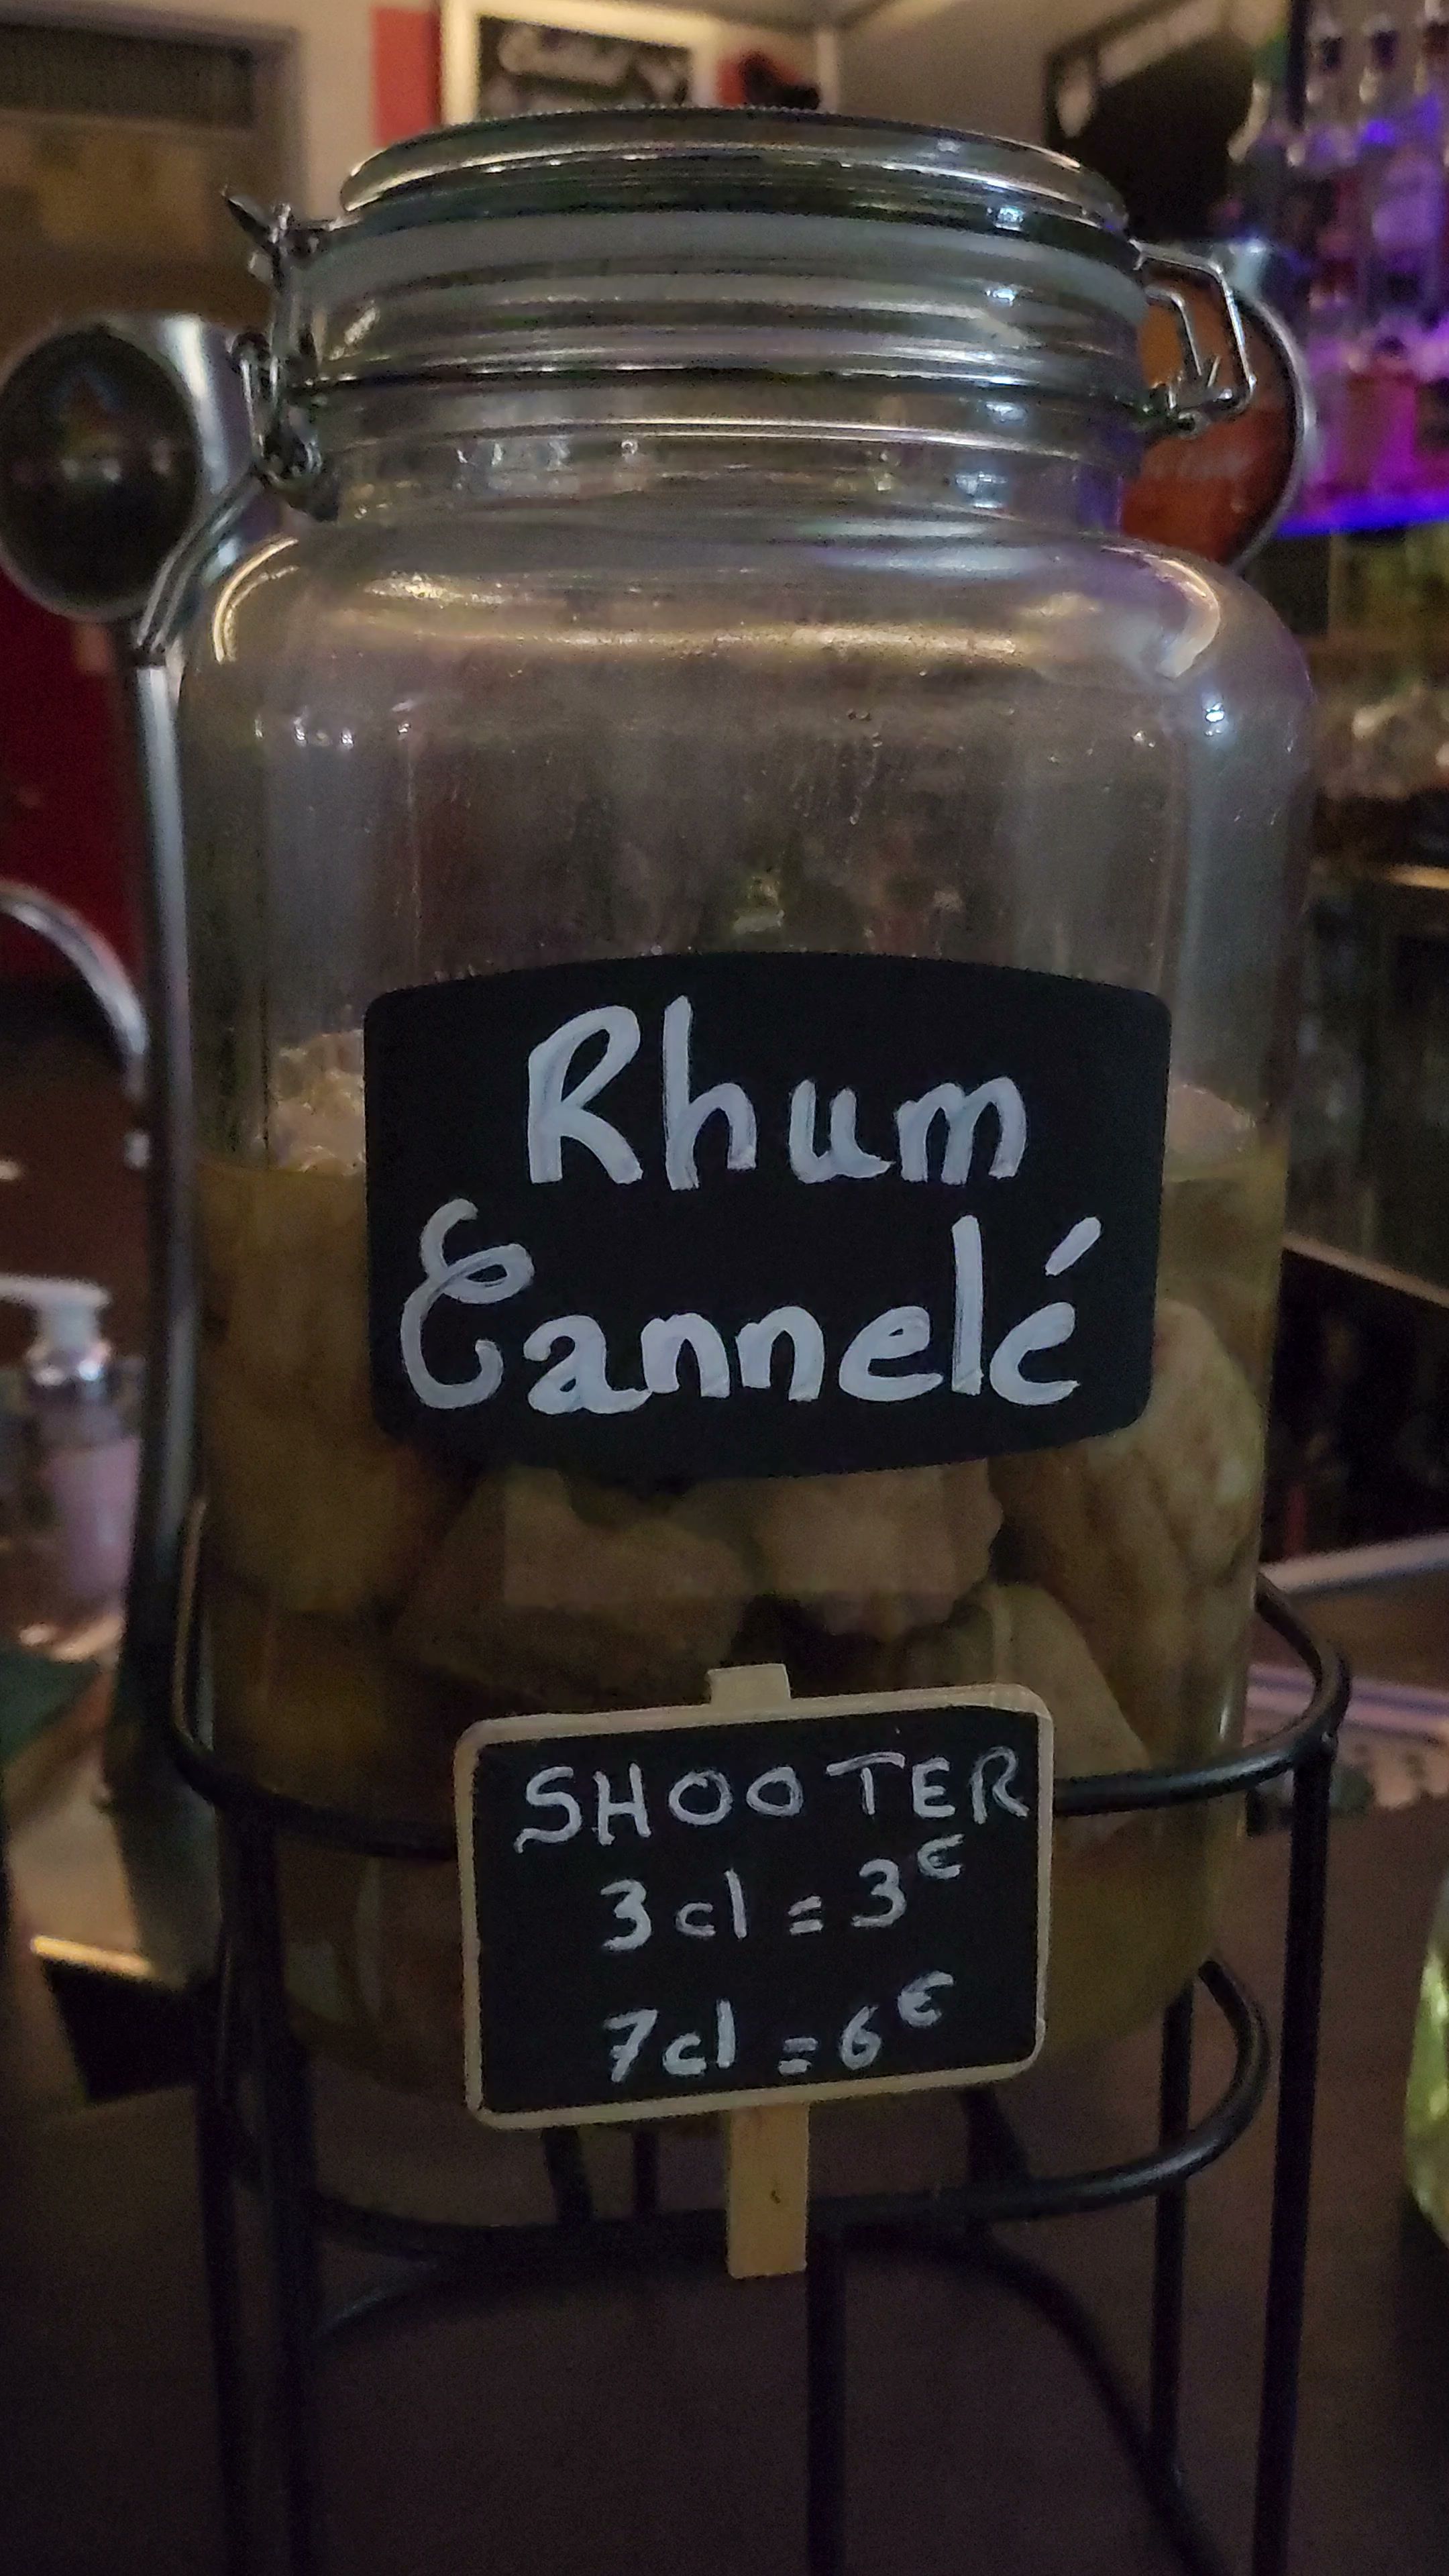 Rhum
Cannelé
SHOOTER
3cl = 3€
7cl = 6€